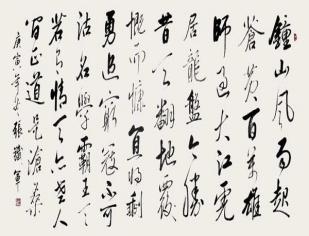 鐘山风雨起
蒼黄百万雄
師过大江虎
踞龍盤今勝
昔天翻地覆
慨而慷宜将剩
勇追窮寇不可
沽名學霸王天
若有情天亦老人
间正道是滄桑
庚寅年冬張軍